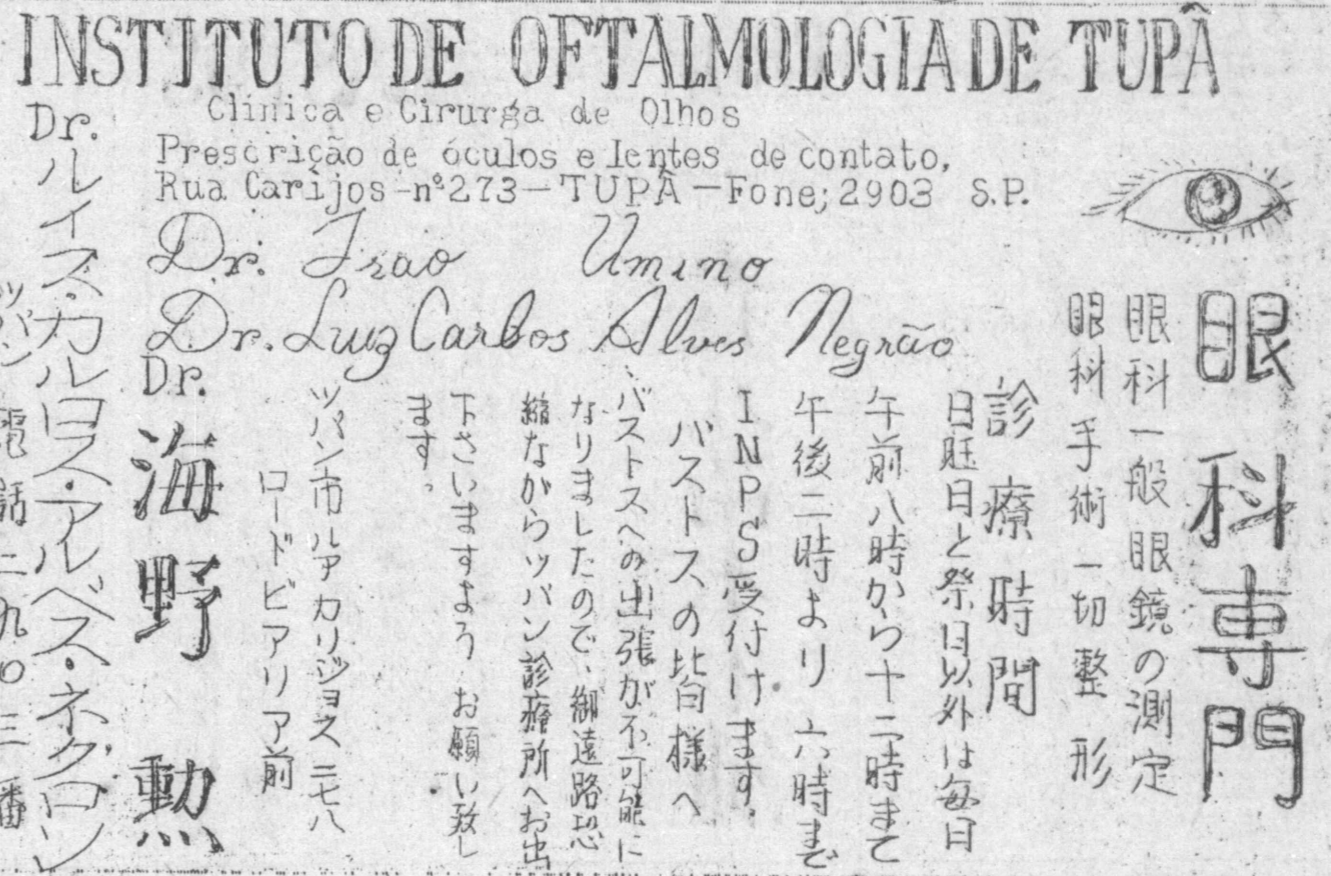 INSTITUTO DE OFTALMOLOGIA DE TUPÃ
Clínica e Cirurga de Olhos
Prescrição de óculos e lentes de contato,
Rua Carijos-nº273-TUPÃ-Fone;2903 S.P.
Dr. Isao Umino
Dr. Luiz Carlos Alves Negrão
眼科専門
眼科一般眼鏡の測定
眼科手術一切整形
診療時間
日旺日と祭日以外は毎日
午前八時から十二時まで
午後二時より六時まで
INPS受付けます.
バストスの皆様へ
バストスへの出張が不可能に
なりましたので、御遠路恐
縮ながらツパン診療所へお出
下さいますよう お願い致し
ます。
ツパン市ルアカリジョス二七八
ロードビアリア前
Dr. 海野 勲
Dr.ルイス・カルロス・アルベス・ネグロン
ツパン 電話二九〇三番